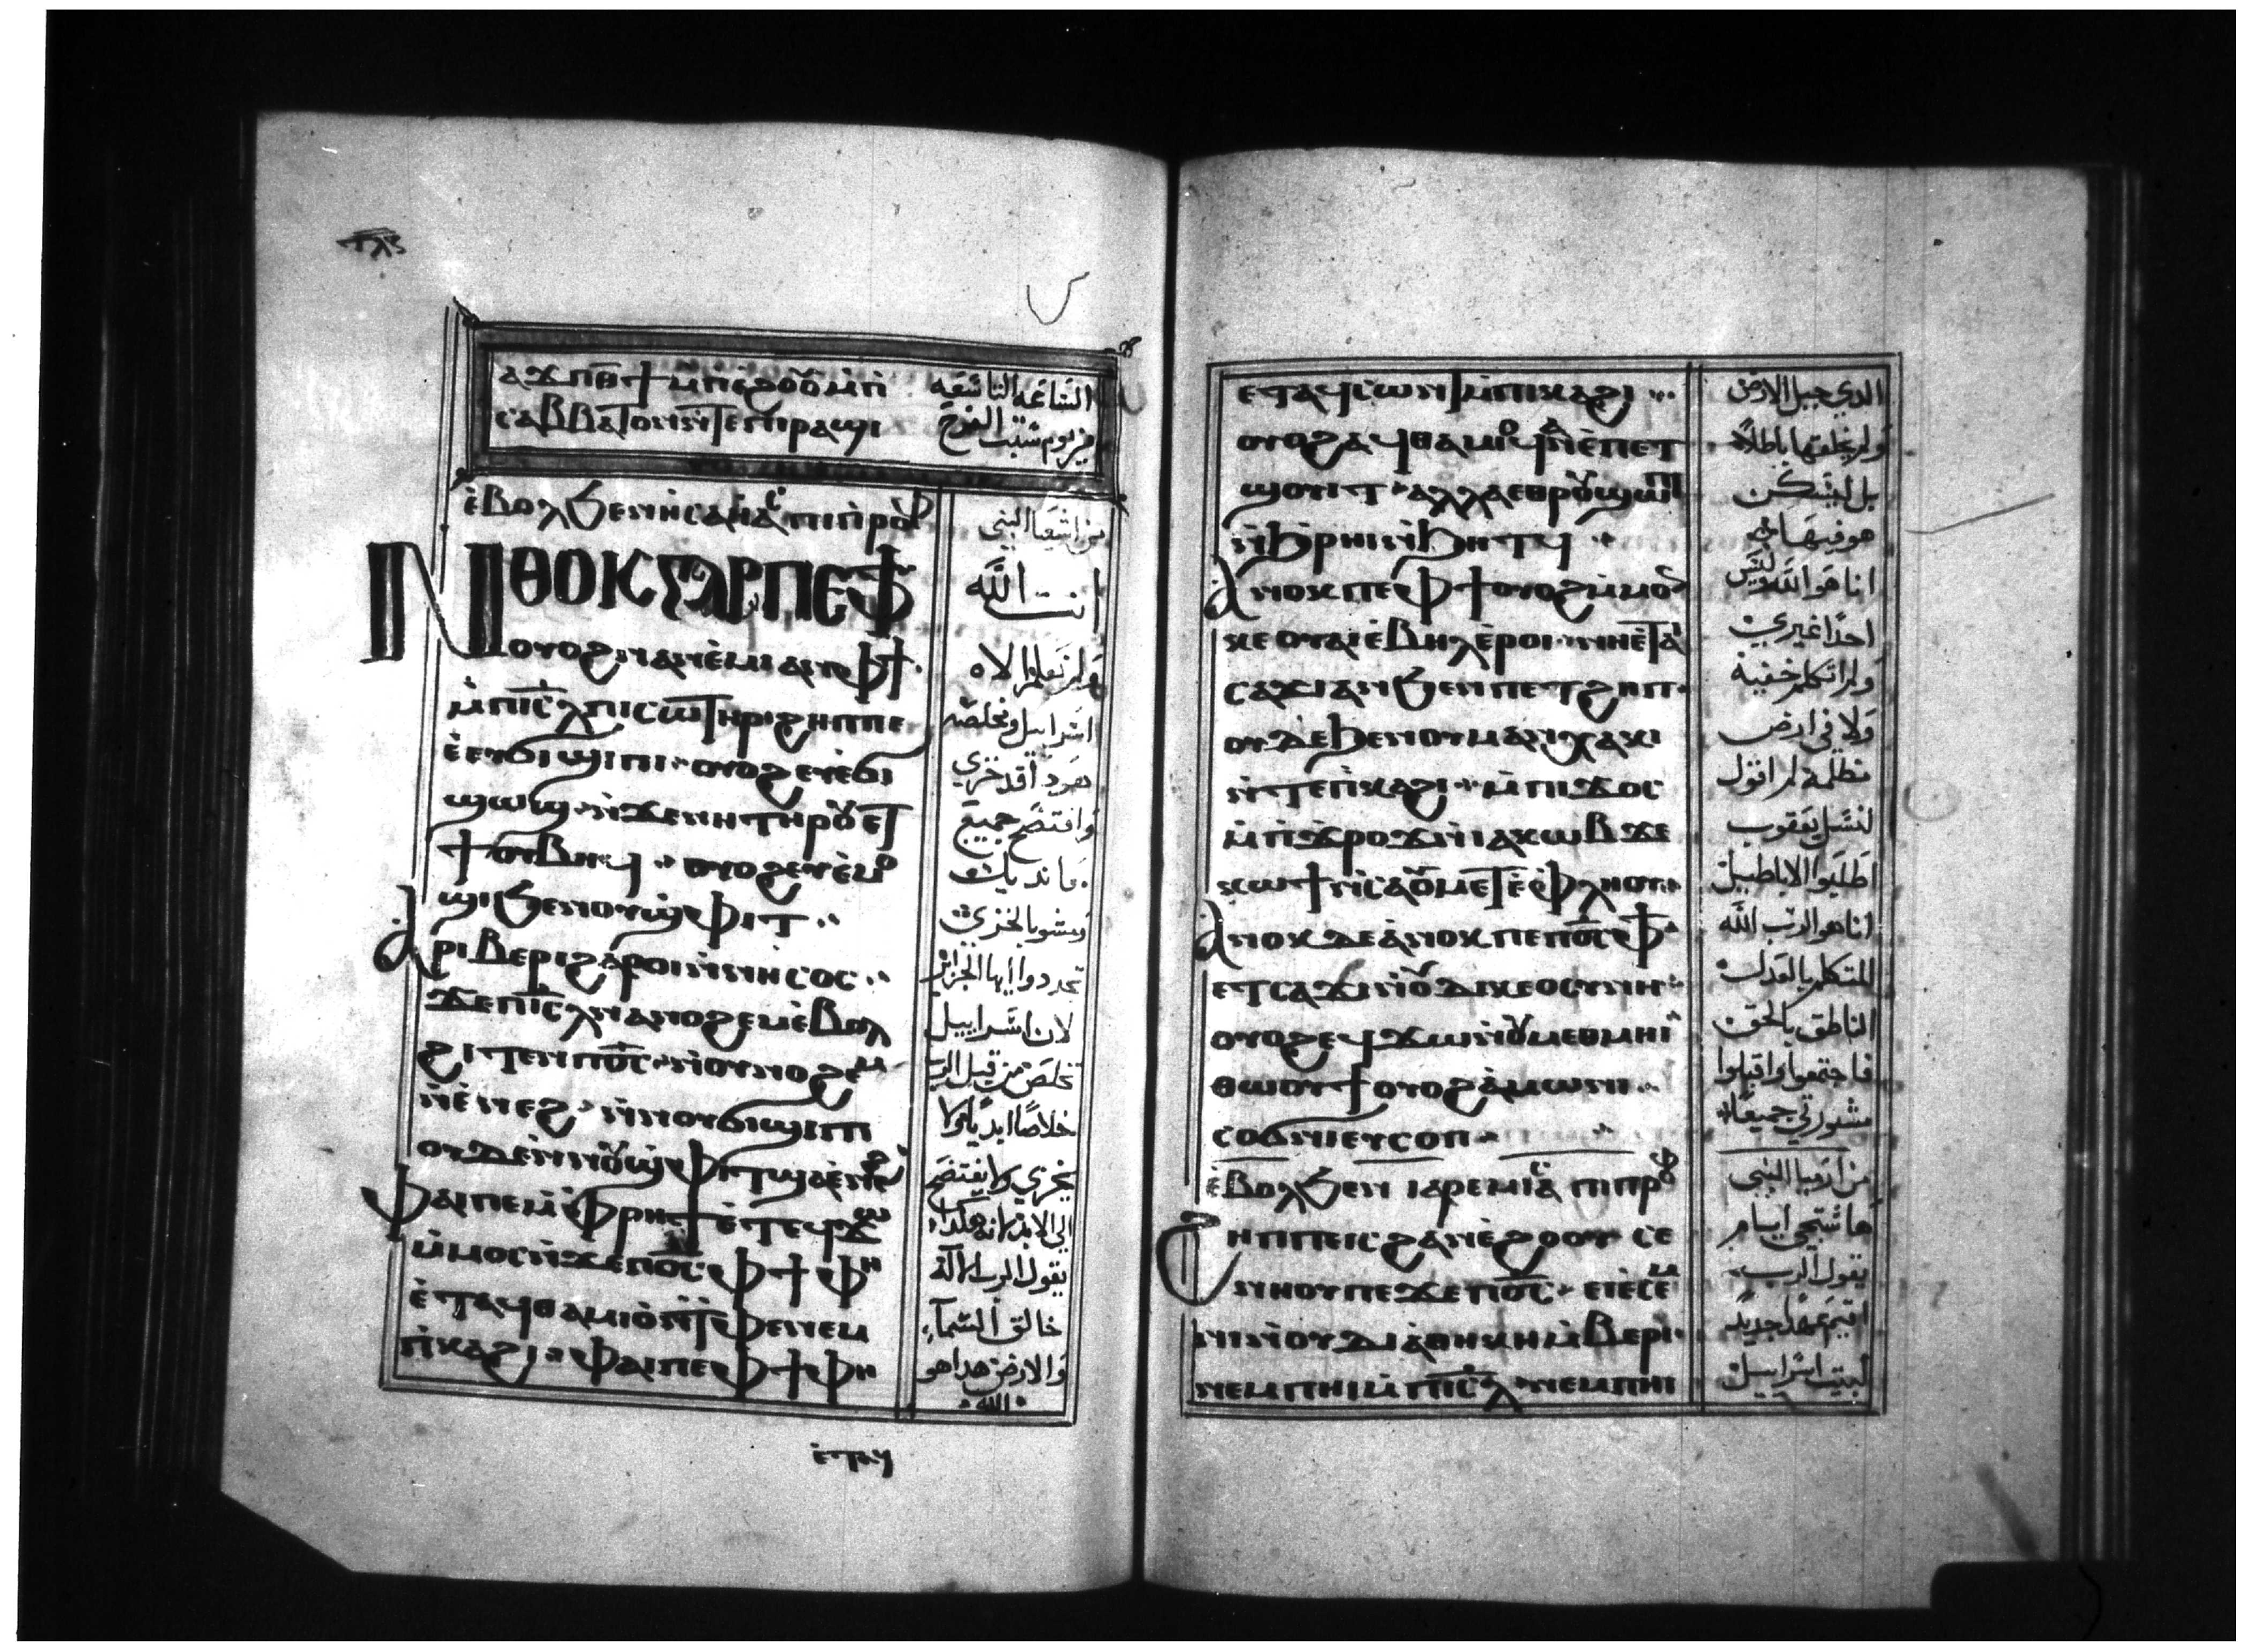 ⲁϫⲡ ⲑϯ ⲙ̀ⲡⲓⲉ̀ϩⲟⲟⲩ ⲙ̀ⲡⲓ
ⲥⲁⲃⲃⲁⲧⲟⲛ ⲛ̀ⲧⲉ ⲡⲓⲣⲁϣⲓ
الساعه التاسعه
من يوم سبت الفرح
ⲉ̀ⲃⲟⲗϧⲉⲛ ⲏⲥⲁⲏ̀ⲁⲥ ⲡⲓⲡⲣⲟⲫ
ⲛⲑⲟⲕ ⲅⲁⲣ ⲡⲉ ⲫϯ
ⲟⲩⲟϩ ⲛⲁⲛⲉ̀ⲙⲓ ⲁⲛ ⲫϯ
ⲙ̀ⲡⲓⲥ̅ⲗ̅ ⲡⲓⲥⲱⲧⲏⲣ ⲓⲥ ϩⲏⲡⲡⲉ
ⲉ̀ⲩⲉϭⲓϣⲓⲡⲓ ⲟⲩⲟϩ ⲉⲩⲉ̀ϭⲓ
ϣⲱϣ ⲛ̀ϫⲉ ⲛⲏ ⲧⲏⲣⲟⲩ ⲉⲧ
ϯ ⲟⲩⲃⲏϥ ⲟⲩⲟϩ ⲉⲩⲉ̀ⲙⲟ
ϣⲓ ϧⲉⲛ ⲟⲩϣⲫⲓⲧ
ⲁⲣⲓⲃⲉⲣⲓ ϩⲁⲣⲟⲓ ⲛⲓⲛⲏⲥⲟⲥ
ϫⲉ ⲡⲓⲥ̅ⲗ̅ ⲛⲁⲛⲟϩⲉⲙ ⲉ̀ⲃⲟⲗ
ϩⲓⲧⲉⲛ ⲡⲟ̅ⲥ̅ ⲛ̀ⲟⲩⲛⲟϩⲉⲙ
ⲛ̀ⲉ̀ⲛⲉϩ ⲛ̀ⲛⲟⲩϭⲓϣⲓⲡⲓ
ⲟⲩⲇⲉ ⲛ̀ⲛⲟⲩϣⲫⲓⲧ ϣⲁ ⲉ̀ⲛⲉϩ
ⲫⲁⲓ ⲡⲉ ⲙ̀ⲫⲣⲏϯ ⲉ̀ⲧⲉϥϫⲱ
ⲙ̀ⲙⲟⲥ ⲛ̀ϫⲉ ⲡⲟ̅ⲥ̅ ⲫϯ ⲫⲏ
ⲉ̀ⲧⲁϥⲑⲁⲙⲓⲟ̀ ⲛ̀ⲧⲫⲉ ⲛⲉⲙ
ⲡ̀ⲕⲁϩⲓ ⲫⲁⲓ ⲡⲉ ⲫϯ ⲫⲏ
ⲉ̀ⲧⲁϥ
من اشعيا النبي
انت الله
ولم نعلم الاه
اسراييل ومخلصه
هودا قد خزي
وافتضح جميع
ما نديك
ومشوا بالخزي
تجددوا ايها الجزاير
لان اسراييل
تخلص من قبل الرب
خلاصًا ابديًا ولا
يخزي ولا يفتضح
الي الابد لانه هكذا
يقول الرب الاله
خالق السماء
والارض هدا هو
الله
ⲉⲧⲁϥⲥⲱⲛⲧ ⲙ̀ⲡⲓⲕⲁϩⲓ
ⲟⲩⲟϩ ⲁϥⲑⲁⲙⲓⲟϥ ⲛⲁ ⲉ̀ⲡⲉⲧ
ϣⲟⲩⲓⲧ ⲁⲗⲗⲁ ⲉⲑⲣⲟⲩϣⲱⲡⲓ
ⲛ̀ϧⲣⲏⲓ ⲛ̀ϧⲏⲧϥ
ⲁⲛⲟⲕ ⲡⲉ ⲫϯ ⲟⲩⲟϩ ⲙ̀ⲙⲟⲛ
ⲕⲉⲟⲩⲁⲓ ⲉ̀ⲃⲏⲗ ⲉ̀ⲣⲟⲓ ⲛⲓⲛⲏ ⲉ̀ⲧⲁⲓ
ⲥⲁϫⲓ ⲁⲛ ϧⲉⲛ ⲡⲉⲧϩⲏⲡ
ⲟⲩⲇⲉ ϧⲉⲛ ⲟⲩⲙⲁ ⲛ̀ⲭⲁⲕⲓ
ⲛ̀ⲧⲉ ⲡ̀ⲕⲁϩⲓ ⲙ̀ⲡⲓϫⲟⲥ
ⲙ̀ⲡ̀ϫⲣⲟϫ ⲛ̀ⲓⲁⲕⲱⲃ ϫⲉ
ⲕⲱϯ ⲛ̀ⲥⲁ ⲟⲩⲙⲉⲧⲉ̀ⲫⲗⲏⲟⲩ
ⲁⲛⲟⲕ ⲇⲉ ⲁ̀ⲛⲟⲕ ⲡⲉ ⲡⲟ̅ⲥ̅ ⲫϯ
ⲉⲧⲥⲁϫⲓ ⲛ̀ⲟⲩⲇⲓⲕⲉⲟⲥⲩⲛⲏ
ⲟⲩⲟϩ ⲉϥϫⲱ ⲛ̀ⲟⲩⲙⲉⲑⲙⲏⲓ
ⲑⲱⲟⲩϯ ⲟⲩⲟϩ ⲁ̀ⲙⲱⲓⲛⲓ
ⲥⲟϭⲛⲓ ⲉⲩⲥⲟⲡ
ⲉ̀ⲃⲟⲗϧⲉⲛ ⲓⲁⲣⲉⲙⲓⲁⲥ ⲡⲓⲡⲣⲟⲫ
ϩⲏⲡⲡⲉ ⲓⲥ ϩⲁⲛⲉ̀ϩⲟⲟⲩ ⲥⲉ
ⲛⲏⲟⲩ ⲡⲉϫⲉ ⲡⲟ̅ⲥ̅ ⲉⲓⲉ̀ⲥⲉⲙ
ⲛⲓ ⲛ̀ⲟⲩⲇⲓⲁⲑⲏⲕⲏ ⲙ̀ⲃⲉⲣⲓ
ⲛⲉⲙ ⲡⲏⲓ ⲙ̀ⲡⲓⲥ̅ⲗ̅ ⲛⲉⲙ ⲡⲏⲓ
الدي جبل الارض
ولم يخلقها باطلاً
بل ليسكن
هو فيها
انا هو الله وليس
احدًا غيري
ولم اتكلم خفية
ولا في ارض
مظلمة لم اقول
لنسل يعقوب
اطلبوا الاباطيل
انا هو الرب الله
المتكلم بالعدل
الناطق بالحق
فاجتمعوا واقبلوا
مشورتي جميعًا
من ارميا النبي
ها ستجي ايام
يقول الرب
اقيم عهدًا جديدًا
لبيت اسراييل